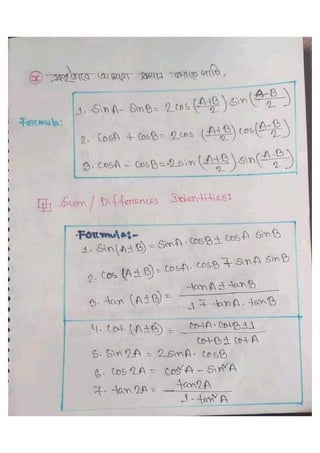 একইভাবে আমরা প্রমাণ করতে পারি,
Formula:
1. SinA - SinB = 2 cos (A+B/2) sin (A-B/2)
2. CosA + CosB = 2 cos (A+B/2) cos (A-B/2)
3. CosA - CosB = -2 sin (A+B/2) sin (A-B/2)
Sum / Differences Identities:
Formula:-
1. Sin (A±B) = SinA. CosB ± cosA SinB
2. Cos (A±B) = CosA. CosB ∓ SinA SinB
3. tan (A±B) = tanA ± tanB / 1 ∓ tanA. tanB
4. Cot (A±B) = cotA. CotB ∓ 1 / CotB ± CotA
5. Sin 2A = 2 sinA. CosB
6. Cos 2A = Cos²A - Sin²A
7. tan 2A = tan2A / 1 - tan²A